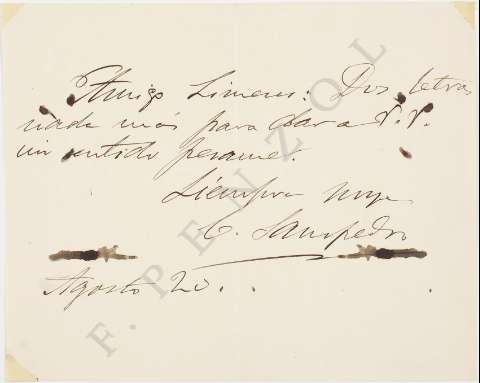 Amigo Limeses: Dos letras
nada más para dar a V.V.
un sentido pesame.
Siempre suyo
C. Sampedro
Agosto 20.
F. PENZOL